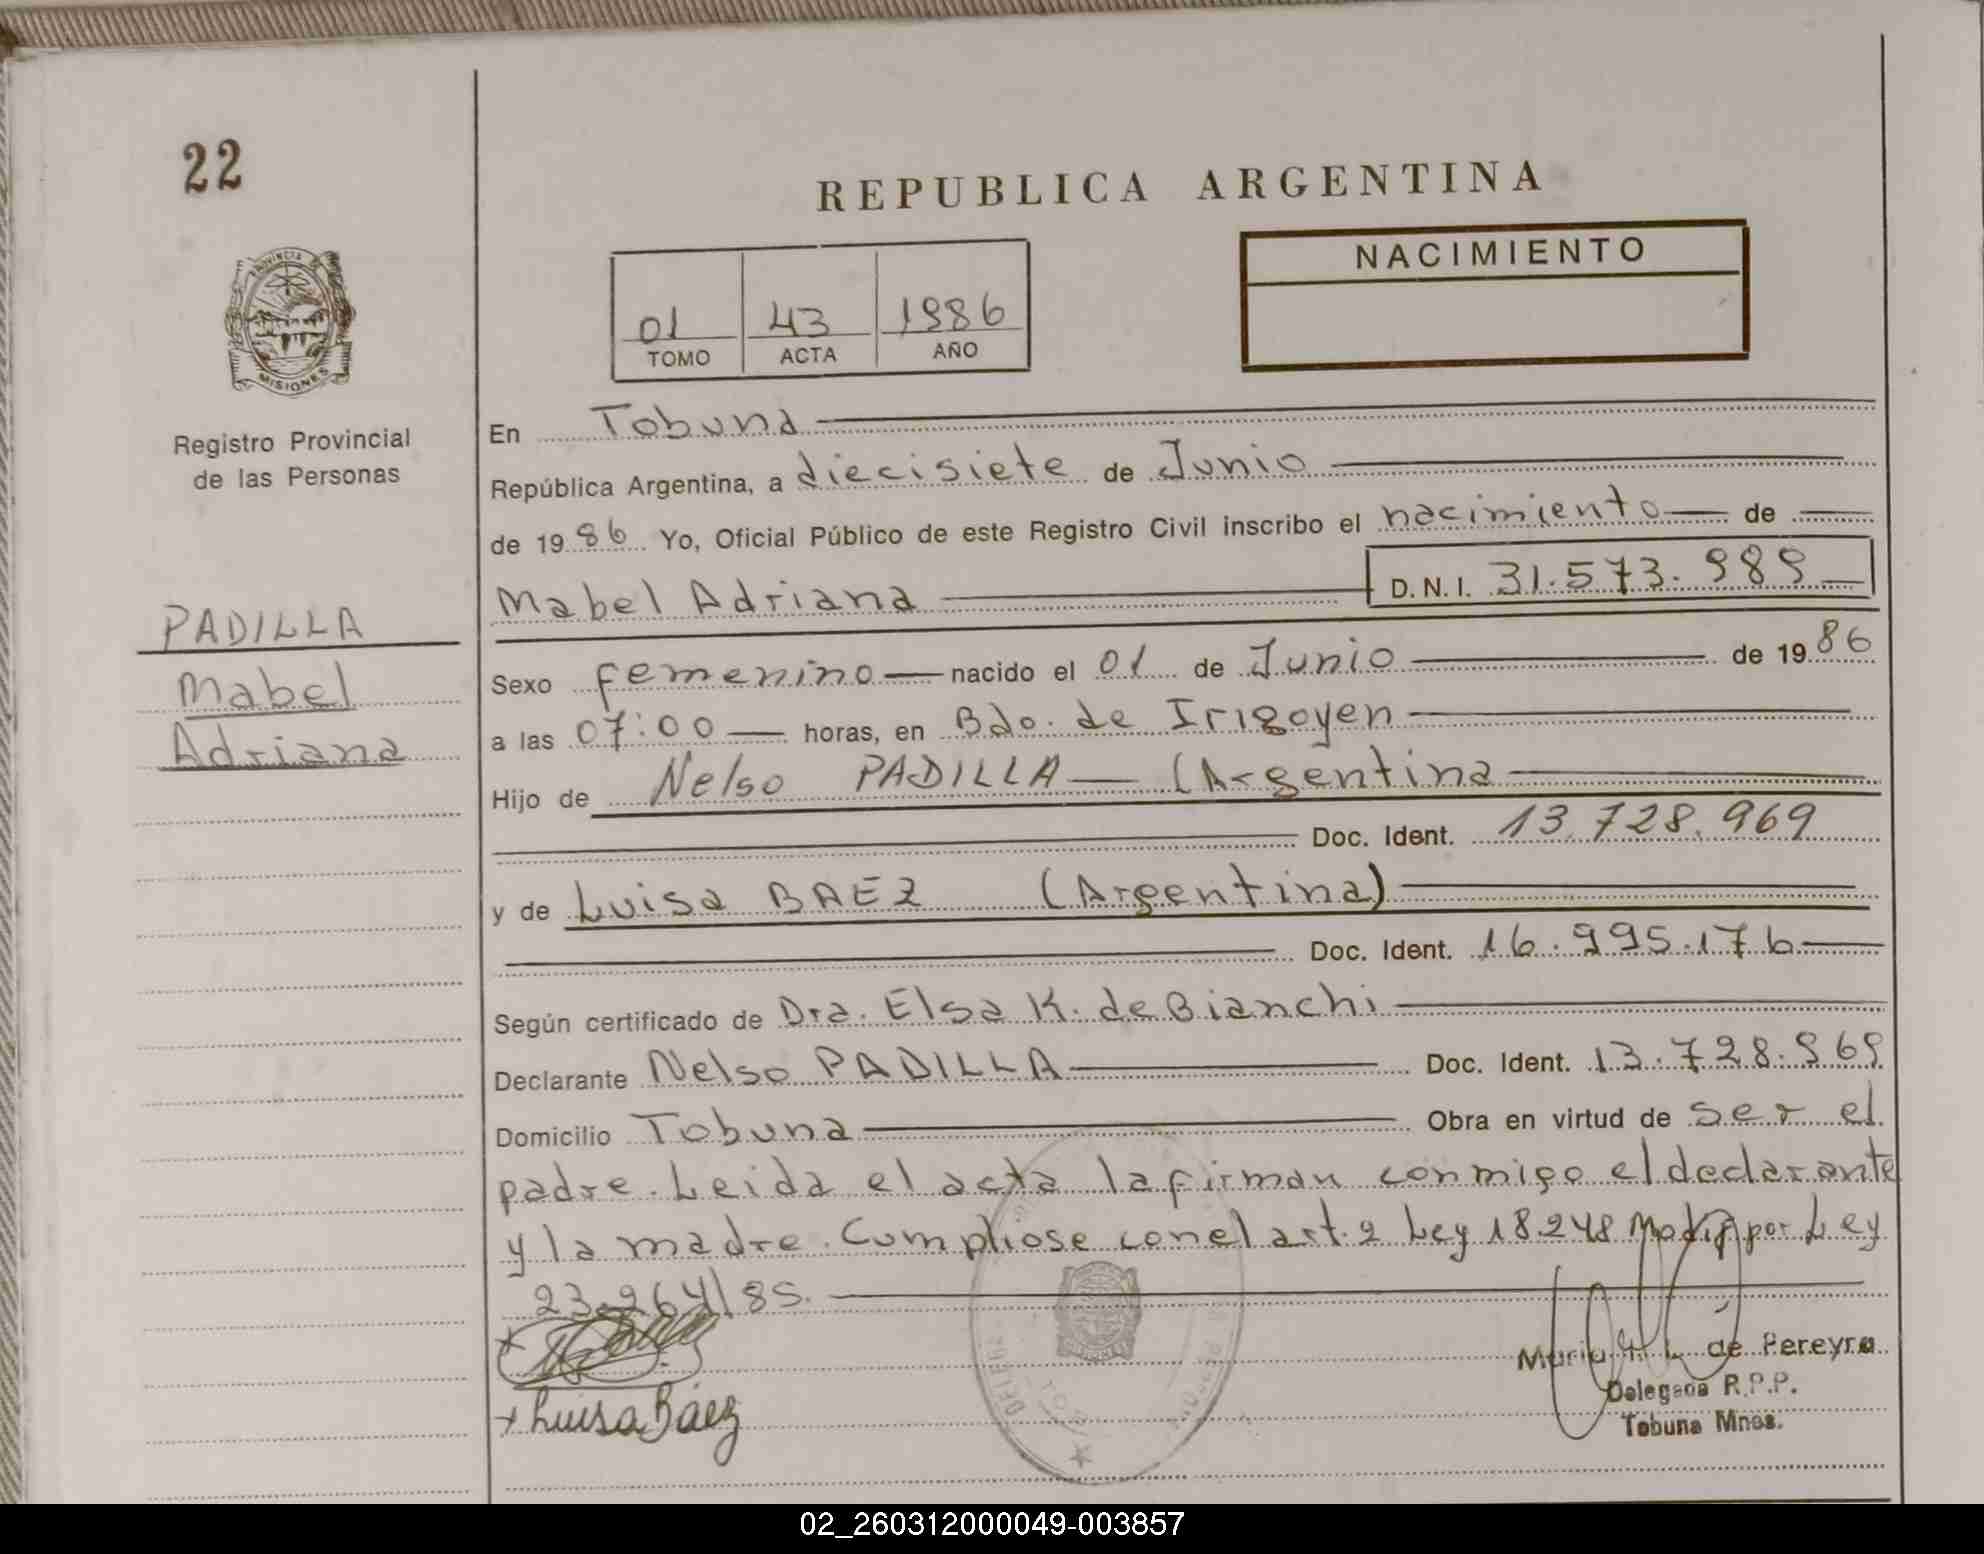 22
REPUBLICA ARGENTINA
NACIMIENTO
01 43 1986
TOMO ACTA AÑO
PROVINCIA DE
MISIONES
Registro Provincial
de las Personas
PADILLA
Mabel
Adriana
En Tobuna
República Argentina, a diecisiete de Junio
de 1986 Yo, Oficial Público de este Registro Civil inscribo el nacimiento de
Mabel Adriana D.N.I. 31.573.989
Sexo femenino nacido el 01 de Junio de 1986
a las 07:00 horas, en Bdo. de Irigoyen
Hijo de Nelso PADILLA (Argentina
Doc. Ident. 13.728.969
y de Luisa BAEZ (Argentina)
Doc. Ident. 16.995.176
Según certificado de Dra. Elsa K. de Bianchi
Declarante Nelso PADILLA Doc. Ident. 13.728.969
Domicilio Tobuna Obra en virtud de ser el
padre. Leida el acta la firman conmigo el declarante
y la madre. Cumpliose con el art. 2 Ley 18.248 Modif por Ley
23.264/85.
Luisa Báez
de Pereyra
Delegada R.P.P.
Tobuna Mnes.
02_260312000049-003857